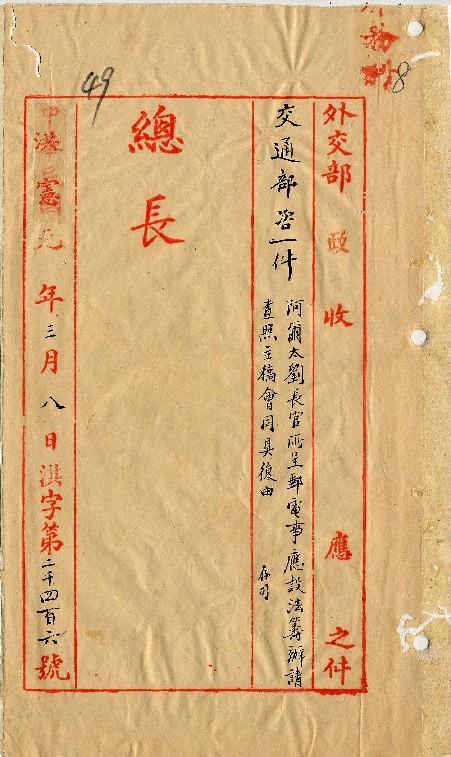 8
49
外交部 政 收 應 之件
交通部咨一件
阿爾太劉長官所呈郵電事應設法籌辦請
查照主稿會同具復由
總長
洪憲元年三月八日洪字第二千四百六號